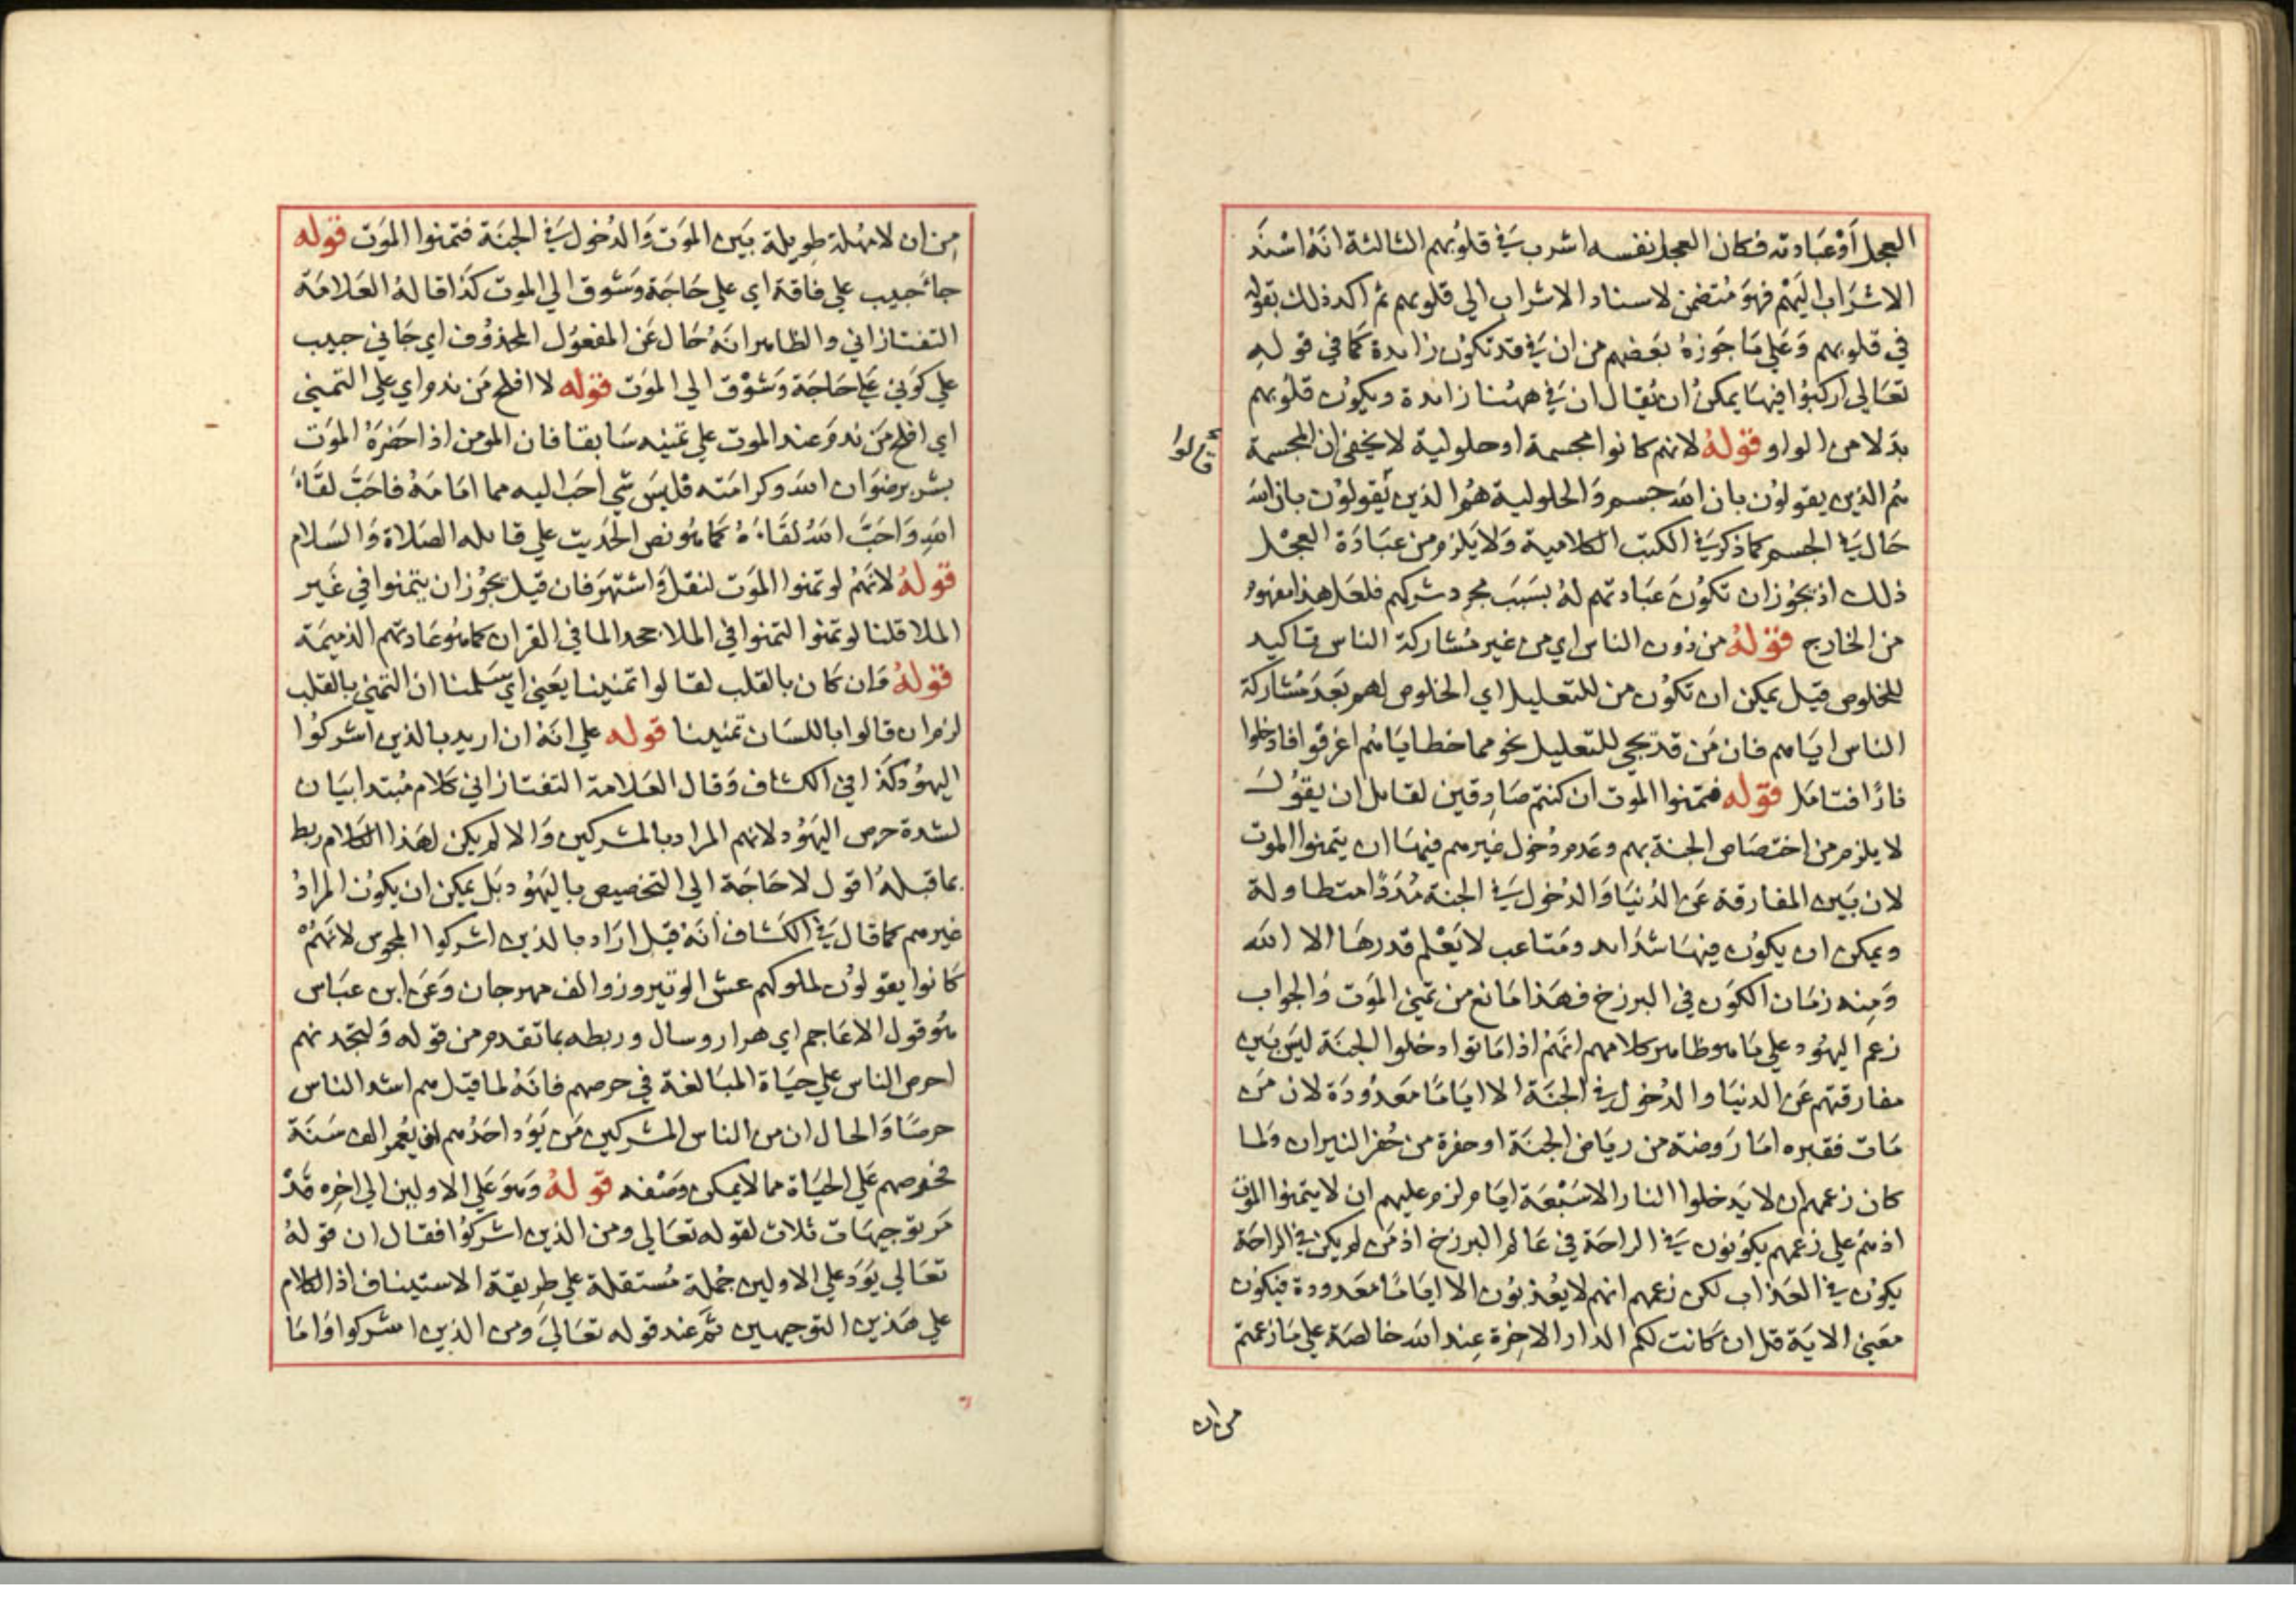 العجل أوعبادته فكان العجل نفسه اشرب في قلوبهم الثالثة انه اسند
الاشراب اليهم فهو متضمن لاسناد الاشراب الي قلوبهم ثم اكد ذلك بقوله
في قلوبهم وعلي ما جوزه بعضهم من ان في قد تكون زايدة كما في قوله
تعالي اركبوا فيها يمكن ان يقال ان في ههنا زايدة ويكون قلوبهم
بدلا من الواو قوله لانهم كانوا مجسمة او حلولية لا يخفي ان المجسمة
قالوا
هم الذين يقولون بان الله جسم والحلولية هم الذين يقولون بان الله
حال في الجسم كما ذكر في الكتب الكلامية ولا يلزم من عبادة العجل
ذلك اذ يجوز ان تكون عبادتهم له بسبب مجرد شركهم فلعل هذا مفهوم
من الخارج قوله من دون الناس اي من غير مشاركة الناس تاكيد
للخلوص قيل يمكن ان تكون من للتعليل اي الخلوص لهم بعد مشاركة
الناس اياهم فان من قد تجي للتعليل نحو مما خطاياهم اغرقوا فادخلوا
نارا فتامل قوله فتمنوا الموت ان كنتم صادقين لقايل ان يقول
لا يلزم من اختصاص الجنة بهم وعدم دخول غيرهم فيها ان يتمنوا الموت
لان بين المفارقة عن الدنيا والدخول في الجنة مددا متطاولة
ويمكن ان يكون فيها شدايد ومتاعب لا يعلم قدرها الا الله
ومنه زمان الكون في البرزخ فهذا مانع من تمني الموت والجواب
زعم اليهود علي ما هو ظاهر كلامهم انهم اذا ماتوا دخلوا الجنة ليس بين
مفارقتهم عن الدنيا والدخول في الجنة الا اياما معدودة لان من
مات فقبره اما روضة من رياض الجنة او حفرة من حفر النيران ولما
كان زعمهم ان لا يدخلوا النار الا سبعة ايام لزم عليهم ان لا يتمنوا الموت
اذ هم علي زعمهم يكونون في الراحة في عالم البرزخ اذ من لم يكن في الراحة
يكون في العذاب لكن زعمهم انهم لا يعذبون الا اياما معدودة فيكون
معني الاية قل ان كانت لكم الدار الاخرة عند الله خالصة علي ما زعمتم
من ان
من ان لا مهلة طويلة بين الموت والدخول في الجنة فتمنوا الموت قوله
جا حبيب علي فاقة اي علي حاجة وشوق الي الموت كذا قاله العلامة
التفتازاني والظاهر انه حال عن المفعول المحذوف اي جاني حبيب
علي كوني علي حاجة وشوق الي الموت قوله لا افلح من ندم اي علي التمني
اي افلح من ندم عند الموت علي تمنيه سابقا فان المومن اذا حضره الموت
بشر برضوان الله وكرامته فليس شي احب اليه مما امامه فاحب لقاء
الله واحب الله لقاءه كما هو نص الحديث علي قايله الصلاة والسلام
قوله لانهم لو تمنوا الموت لنقل واشتهر فان قيل يجوز ان يتمنوا في غير
الملا قلنا لو تمنوا لتمنوا في الملا جحدا لما في القران كما هو عادتهم الذميمة
قوله وان كان بالقلب لقالوا تمنينا يعني اي سلمنا ان التمني بالقلب
لزم ان قالوا باللسان تمنينا قوله علي انه ان اريد بالذين اشركوا
اليهود كذا في الكشاف وقال العلامة التفتازاني كلام مبتدا بيان
لشدة حرص اليهود لانهم المراد بالمشركين والا لم يكن لهذا الكلام ربط
بما قبله اقول لا حاجة الي التخصيص باليهود بل يمكن ان يكون المراد
غيرهم كما قال في الكشاف انه قيل اراد بالذين اشركوا المجوس لانهم
كانوا يقولون لملوكهم عش الو نيروز والف مهرجان وعن ابن عباس
هو قول الاعاجم اي هزار وسال وربطه بما تقدم من قوله ولتجدنهم
احرص الناس علي حياة المبالغة في حرصهم فانه لما قيل هم اشد الناس
حرصا والحال ان من الناس المشركين من يود احدهم لو يعمر الف سنة
فحرصهم علي الحياة مما لا يمكن وصفه قوله وهو علي الاولين الي اخره قد
مر توجيهات ثلاث لقوله تعالي ومن الذين اشركوا فقال ان قوله
تعالي يود علي الاولين جملة مستقلة علي طريقة الاستيناف اذ الكلام
علي هذين التوجيهين تم عند قوله تعالي ومن الذين اشركوا واما